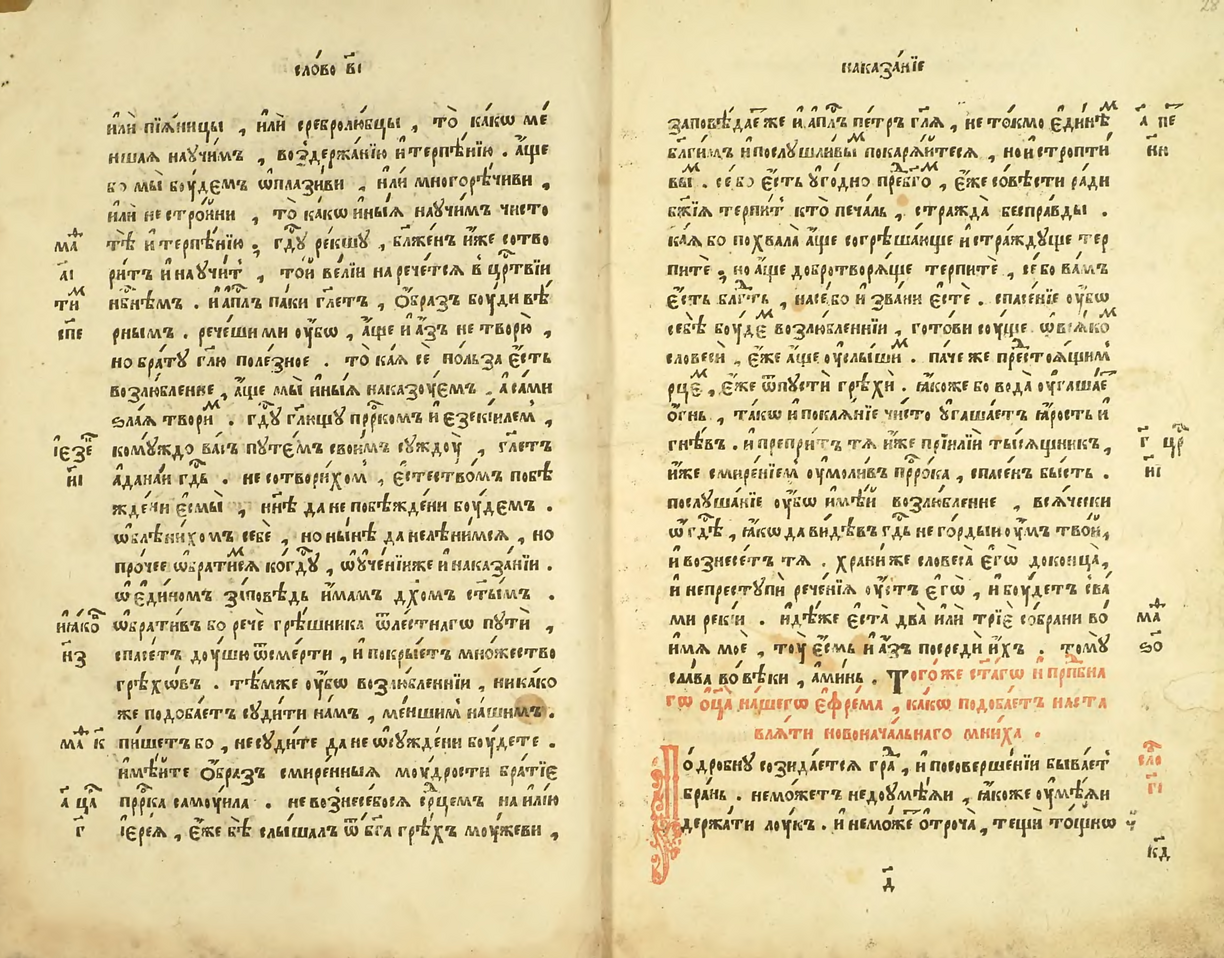 сло́во в҃і
и҆лѝ пїѧ́ницы , и҆лѝ сребролю́бцы , то̀ ка́кѡ ме́
ншаѧ наꙋчи́мъ , воздержа́нїю и҆ терпѣ́нїю . а҆́ще
бо мы̀ бꙋ́демъ ѡ҆плази́ви , и҆лѝ многорѣ́чиви ,
и҆лѝ нестро́йни , то̀ ка́кѡ и҆ны́ѧ наꙋчи́мъ чисто
тѣ̀ и҆ терпѣ́нїю . гдⷭ҇ꙋ ре́кшꙋ , бл҃же́нъ и҆́же сотво
ри́тъ и҆ наꙋчи́тъ , то́й ве́лїи нарече́тсѧ в црⷭ҇твїи
нбⷭ҇нѣмъ . и҆ а҆пⷭ҇лъ па́ки гл҃етъ , ѻ҆́бразъ боу́ди вѣ́
рнымъ . рече́ши ми оу҆́бѡ , а҆́ще и҆ а҆́зъ не творю̀ ,
но бра́тꙋ гл҃ю поле́зное . то̀ ка́ѧ сѐ по́льза є҆́сть
возлю́бленне , а҆́ще мы̀ и҆ны́ѧ наказоу́емъ , а҆ са́ми
ѕла́ѧ твори́ⷨ . гдⷭ҇ꙋ гл҃ющꙋ прⷪ҇ркомъ и҆ є҆зекі́илемъ ,
комꙋ́ждо ва́съ пꙋте́мъ свои́мъ сꙋждоу̀ , гл҃етъ
а҆дана́и гдⷭ҇ь . не сотвори́хом , є҆стество́мъ побѣ
жде́ни є҆смы̀ , нн҃ѣ да не побѣжде́ни боу́демъ .
ѡ҆блѣни́хомъ себѐ , но ны́нѣ да не лѣни́мсѧ , но
про́чее ѡ҆брати́ⷨсѧ ко гдⷭ҇ꙋ , ѡ҆ оу҆че́нїи же и҆ наказа́нїи .
ѡ҆ є҆ди́номъ за́повѣдь и҆́мамъ дх҃омъ ст҃ы́мъ .
ѡ҆брати́въ бо речѐ грѣ́шника ѿ ле́стнагѡ пꙋтѝ ,
спасе́тъ доу́шю ѿ сме́рти , и҆ покры́етъ мно́жество
грѣхѡ́въ . тѣ́мже оу҆́бѡ возлю́бленнїи , ника́ко
же подоба́етъ сꙋди́ти на́мъ , ме́ншимъ на́шимъ .
пи́шетъ бо , не сꙋди́те да не ѡ҆сꙋжде́ни боу́дете .
и҆мѣ́йте ѻ҆́бразъ смире́нныѧ моу́дрости бра́тїе
прⷪ҇рка самоуи́ла . не вознесе́ бо сѧ се́рцемъ на и҆лі́ю
і҆ере́ѧ , є҆́же бѣ̀ слы́шалъ ѿ бг҃а грѣ́хъ моу́жеви ,
маⷴ
а҃і
тиⷨ
спе
і҆езе
н҃і
и҆а́ко
и҆з
маⷴ к
а҃ цⷬ҇а
г҃
наказа́нїе
заповѣ́дает же и҆ а҆пⷭ҇лъ пе́тръ гл҃ѧ , не то́кмо є҆ди́нѣⷨ
бл҃ги́мъ и҆ послꙋшли́выⷨ покарѧ́йтесѧ , но и҆ стропти́
выⷨ . се́ бо є҆́сть оу҆го́дно преⷣ бг҃оⷨ , є҆́же со́вѣсти ра́ди
бж҃їѧ терпи́т кто̀ печа́ль , стражда̀ беспра́вды .
ка́ѧ бо похвала̀ а҆́ще согрѣша́юще и҆ стра́ждꙋще тер
пите̂ , но а҆́ще добротворѧ́ще терпитѐ , се́ бо ва́мъ
є҆́сть блгⷣть , на се́ бо и҆ зва́ни є҆стѐ . спасе́нїе оу҆́бѡ
себѣ̀ боу́деⷨ возлю́бленнїи , гото́ви соу́ще ѡ҆ всѧ́коⷨ
словесѝ , є҆́же а҆́ще оу҆слы́шиⷨ . па́че же преⷣстоѧ́щим
рце́ⷨ , є҆́же ѿпꙋстѝ грѣхѝ . ꙗ҆́коже бо вода̀ оу҆гаша́е
ѻ҆́гнь , та́кѡ и҆ покаѧ́нїе чи́сто оу҆гаша́етъ ꙗ҆́рость и҆
гнѣ́въ . и҆ препри́тъ тѧ̀ и҆́же при и҆лїѝ ты́сѧщникъ ,
и҆́же смире́нїем оу҆моли́въ прⷪ҇ро́ка , спасе́нъ бы́сть .
послꙋша́нїе оу҆́бѡ и҆мѣ́й возлю́бленне , всѧ́чески
ѡ҆ гдⷭ҇ѣ , ꙗ҆́кѡ да ви́дѣвъ гдⷭ҇ь не го́рдый оу҆́мъ тво́й ,
и҆ вознесе́тъ тѧ̀ . храни́ же словеса̀ є҆гѡ̀ до конца̀ ,
и҆ не престꙋпѝ рече́нїѧ оу҆́стъ є҆гѡ̀ , и҆ боу́детъ с ва́
ми реки́и . и҆дѣ́же є҆ста̀ два̀ и҆лѝ трїѐ собрани во
и҆́мѧ моѐ , тоу̀ є҆́смь и҆ а҆́зъ посредѝ и҆́хъ . томꙋ̀
сла́ва во вѣ́ки , а҆ми́нь . Того́же ст҃а́гѡ и҆ прпⷣбна
гѡ ѻ҆ц҃а̀ на́шегѡ є҆фре́ма , ка́кѡ подоба́етъ наста
влѧ́ти новонача́льнаго мни́ха .
Подро́бнꙋ созида́етсѧ гра́ⷣ , и҆ по соверше́нїи быва́ет
бра́нь . не мо́жетъ недоꙋмѣ́ѧи , ꙗ҆́коже оу҆мѣ́ѧи
держа́ти лоу́къ . и҆ не мо́же ѻ҆троча̀ , тещѝ то́щнѡ
а҃ пе
н҃и
г҃ цⷬ҇
н҃і
маⷴ
ѕо
сло
г҃і
к҃д
д҃
28